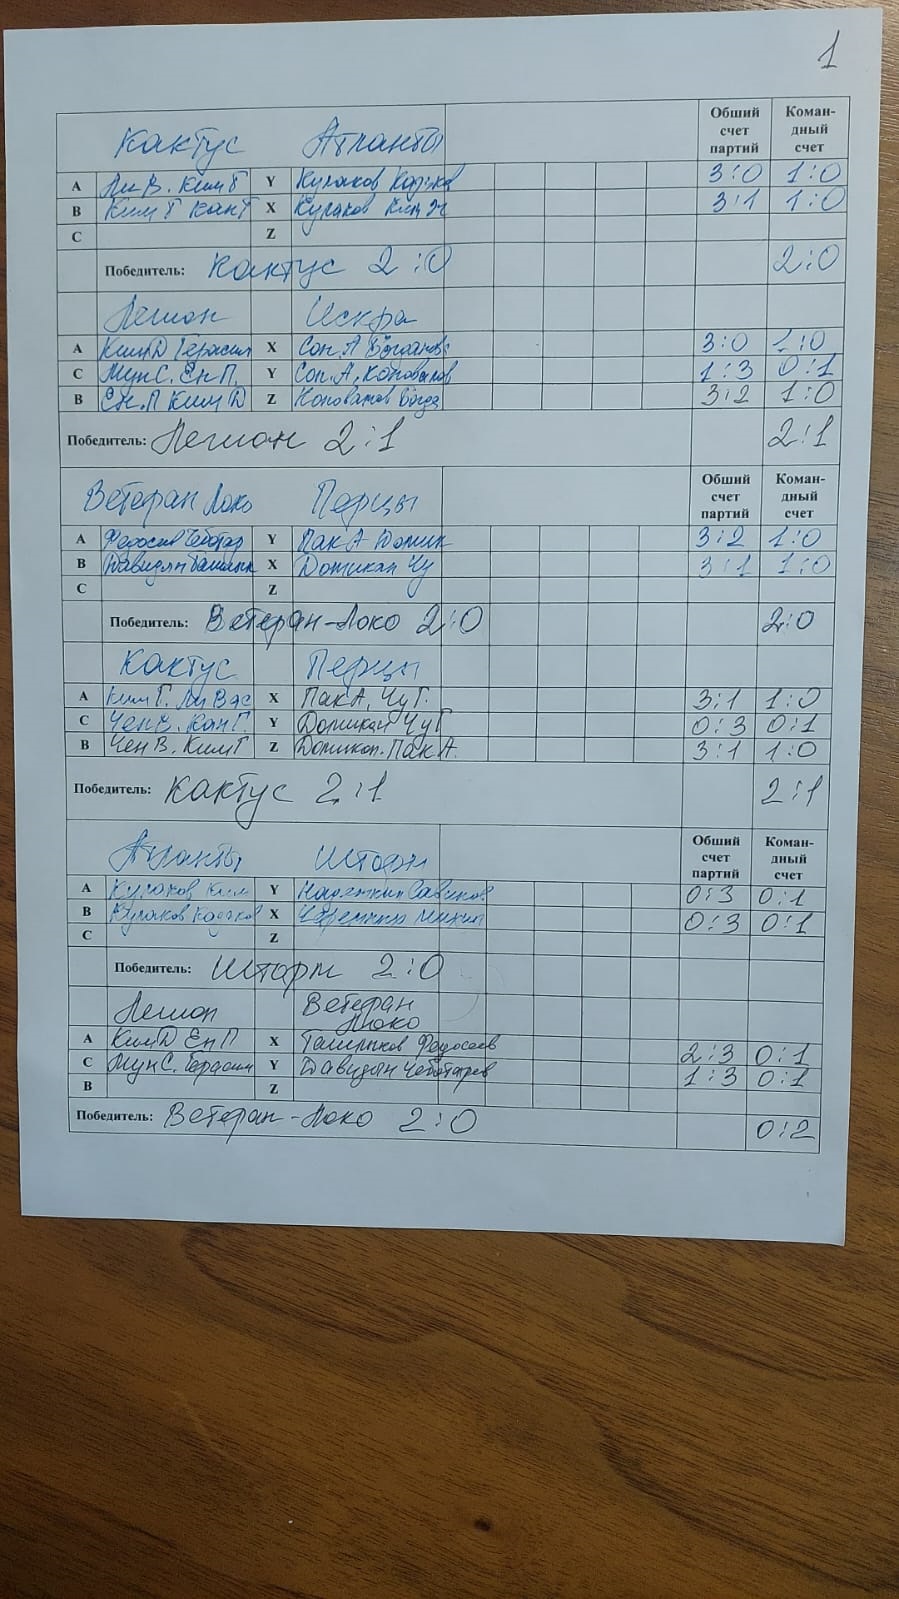 1
Кактус Атланты Общий счет партий Коман-дный счет
A Ли В. Ким Г Y Кулаков 3:0 1:0
B Ким Г Кан Г X Кулаков Ким 3:1 1:0
C Z
Победитель: Кактус 2:0 2:0
Легион Искра
A Ким Д Герасим X Сон А 3:0 1:0
C Мун С. Ен П. Y Сон. А, Коновалов 1:3 0:1
B Ен. П Ким Д Z Коновалов Богда 3:2 1:0
Победитель: Легион 2:1 2:1
Ветеран Локо Перцы Общий счет партий Коман-дный счет
A Федосеев Чеботар Y Пак А 3:2 1:0
B Давидян X Чу 3:1 1:0
C Z
Победитель: Ветеран-Локо 2:0 2:0
Кактус Перцы
A Ким Г. Ли Вяс X Пак А, Чу Г. 3:1 1:0
C Чен В. Кан Г. Y Чу Г 0:3 0:1
B Чен В. Ким Г Z Пак А. 3:1 1:0
Победитель: Кактус 2:1 2:1
Атланты Шторм Общий счет партий Коман-дный счет
A Кулаков Ким Y 0:3 0:1
B Кулаков X 0:3 0:1
C Z
Победитель: Шторм 2:0
Легион Ветеран Локо
A Ким Д Ен П X Федосеев 2:3 0:1
C Мун С. Герасим Y Давидян Чеботарев 1:3 0:1
B Z
Победитель: Ветеран-Локо 2:0 0:2